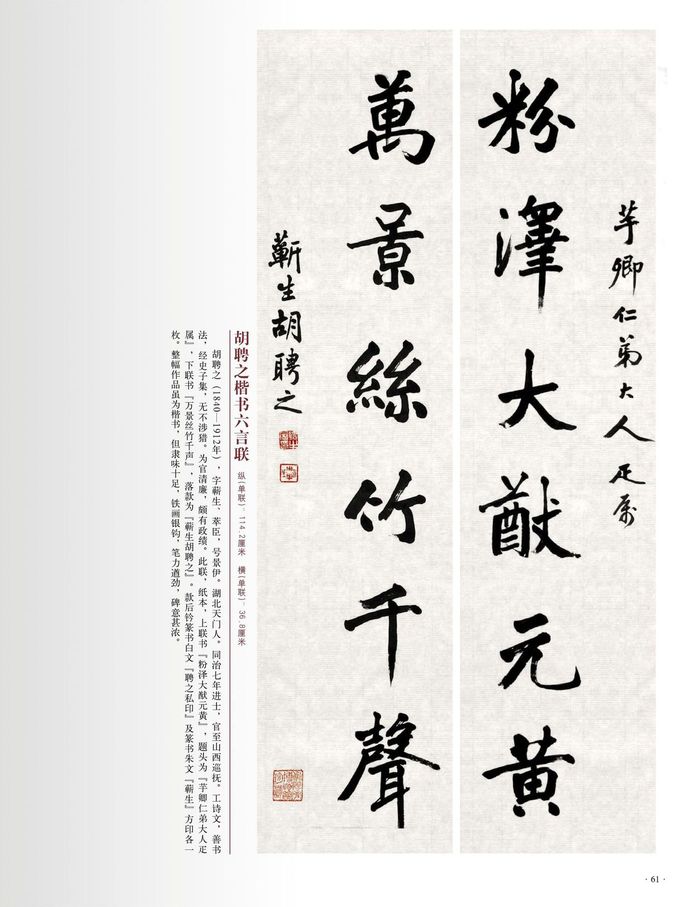 芋卿仁弟大人疋属
粉澤大猷元黄
萬景絲竹千聲
蘄生胡聘之
胡聘之楷书六言联
纵(单联)：114.2厘米　横(单联)：36.8厘米
胡聘之(1840—1912年)，字蕲生、萃臣，号景伊。湖北天门人。同治七年进士，官至山西巡抚。工诗文，善书
法，经史子集，无不涉猎。为官清廉，颇有政绩。此联，纸本，上联书『粉泽大猷元黄』，题头为『芋卿仁弟大人疋
属』，下联书『万景丝竹千声』，落款为『蕲生胡聘之』。款后钤篆书白文『聘之私印』及篆书朱文『蕲生』方印各一
枚。整幅作品虽为楷书，但隶味十足，铁画银钩，笔力遒劲，碑意甚浓。
· 61 ·